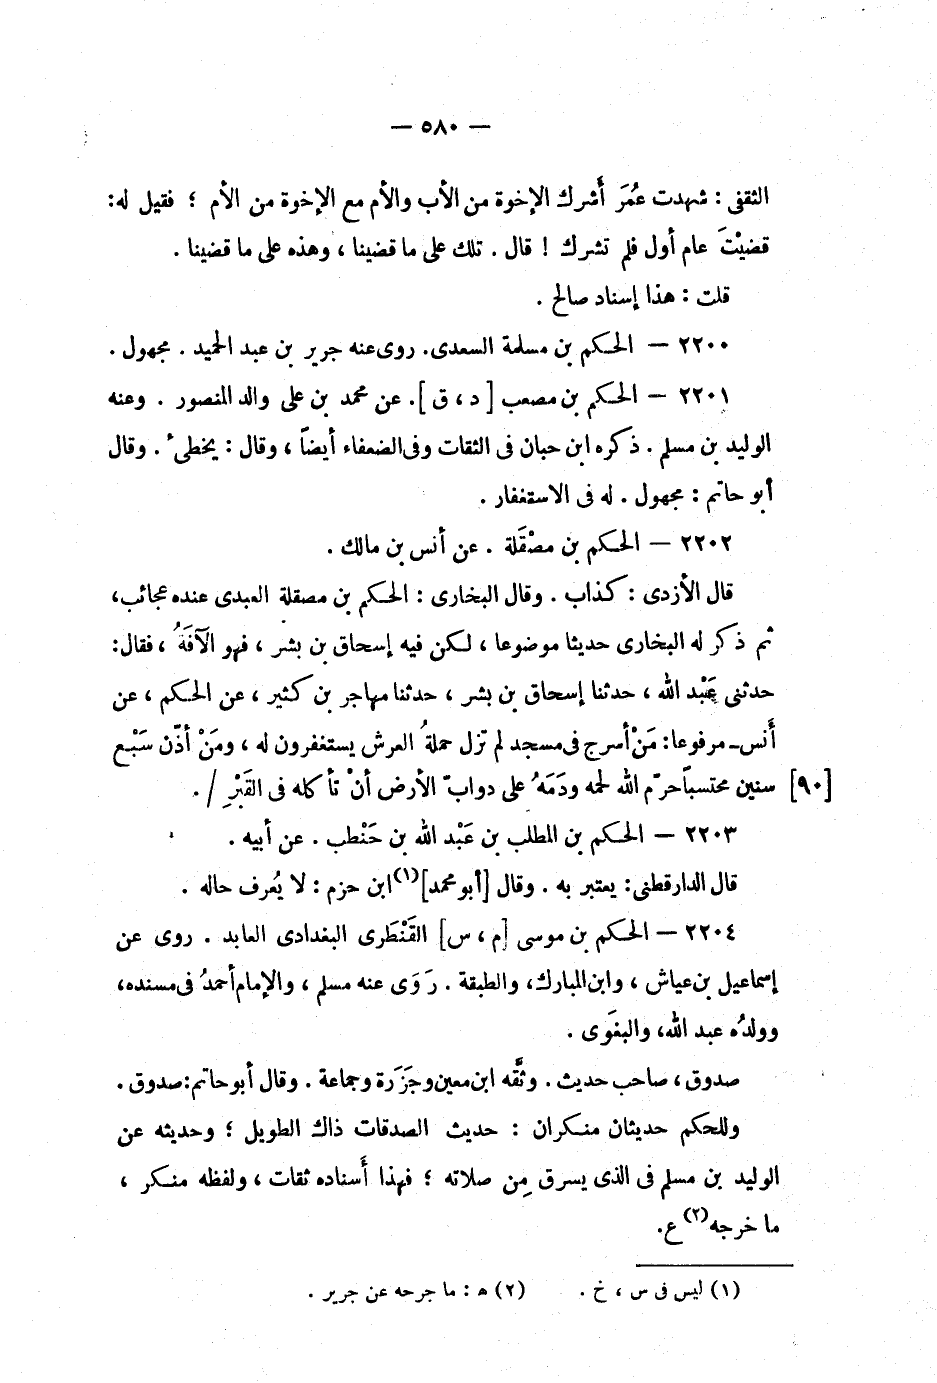 — ٥٨٠ —
الثقفى : شهدت عُمَر أَشرك الإخوة من الأب والأم مع الإخوة من الأم ؛ فقيل له:
قضيْتَ عام أول فلم تشرك ! قال . تلك على ما قضينا ، وهذه على ما قضينا .
قلت : هذا إسناد صالح .
٢٢٠٠ — الحكم بن مسلمة السعدى. روى عنه جرير بن عبد الحميد . مجهول .
٢٢٠١ — الحكم بن مصعب [ د ، ق ]. عن محمد بن على والد المنصور . وعنه
الوليد بن مسلم . ذكره ابن حبان فى الثقات وفى الضعفاء أيضاً ، وقال : يخطىء . وقال
أبو حاتم : مجهول . له فى الاستغفار .
٢٢٠٢ — الحكم بن مصْقَلة . عن أنس بن مالك .
قال الأزدى : كذاب . وقال البخارى : الحكم بن مصقلة العبدى عنده عجائب،
ثم ذكر له البخارى حديثا موضوعا ، لكن فيه إسحاق بن بشر ، فهو الآفَةُ ، فقال:
حدثنى عَبْد الله ، حدثنا إسحاق بن بشر ، حدثنا مهاجر بن كثير ، عن الحكم ، عن
أَنس ـ مرفوعا: مَنْ أسرج فى مسجد لم تزل حملةُ العرش يستغفرون له ، ومَنْ أذّن سَبْع
[٩٠] سنين محتسباً حرّم الله لحمه ودَمَهُ على دوابّ الأرض أنْ تأكله فى القَبْرِ / .
٢٢٠٣ — الحكم بن المطلب بن عَبْد الله بن حَنْطب . عن أبيه .
قال الدارقطنى: يعتبر به . وقال [أبو محمد](١) ابن حزم : لا يُعرف حاله .
٢٢٠٤ — الحكم بن موسى [م ، س] القَنْطَرى البغدادى العابد . روى عن
إسماعيل بن عياش ، وابن المبارك، والطبقة . رَوَى عنه مسلم ، والإمام أحمدُ فى مسنده،
وولدُه عبد الله، والبغَوى .
صدوق، صاحب حديث. وثَّقه ابن معين وجَزَرة وجماعة . وقال أبو حاتم: صدوق .
وللحكم حديثان منكران : حديث الصدقات ذاك الطويل ؛ وحديثه عن
الوليد بن مسلم فى الذى يسرق مِن صلاته ؛ فهذا أَسناده ثقات ، ولفظه منكر ،
ما خرجه(٢) ع.
(١) ليس فى س ، خ . (٢) ه : ما جرحه عن جرير .